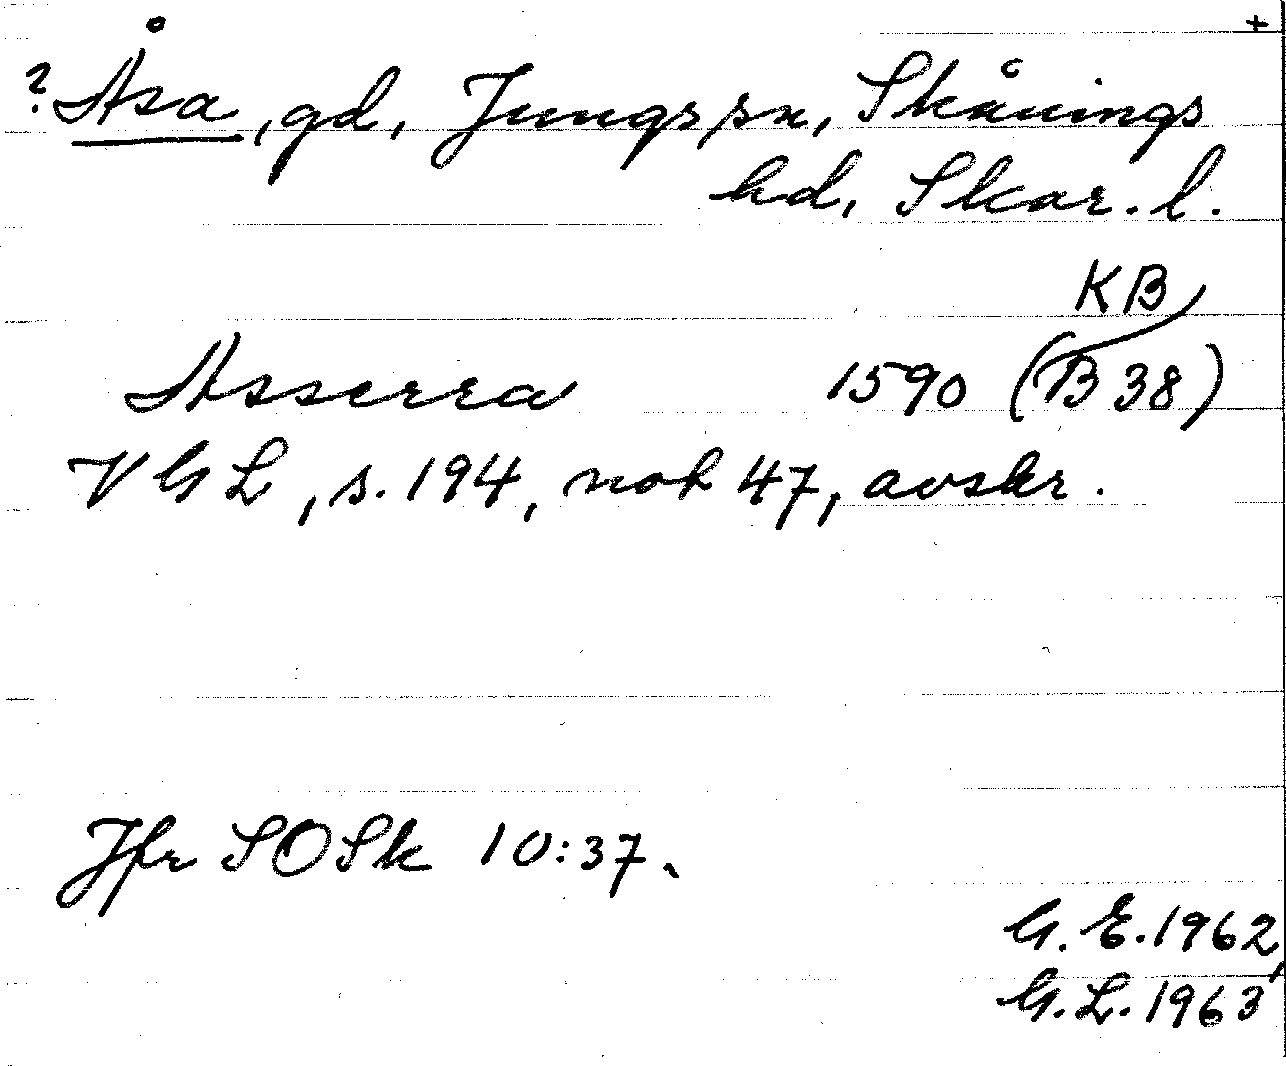 +
? Åsa, gd, Jungs sn, Skånings
hd, Skar. l.
KB
Asserra 1590 (B 38)
VGL, s. 194, not 47, avskr.
Jfr SOSk 10:37.
G. E. 1962,
G. L. 1963